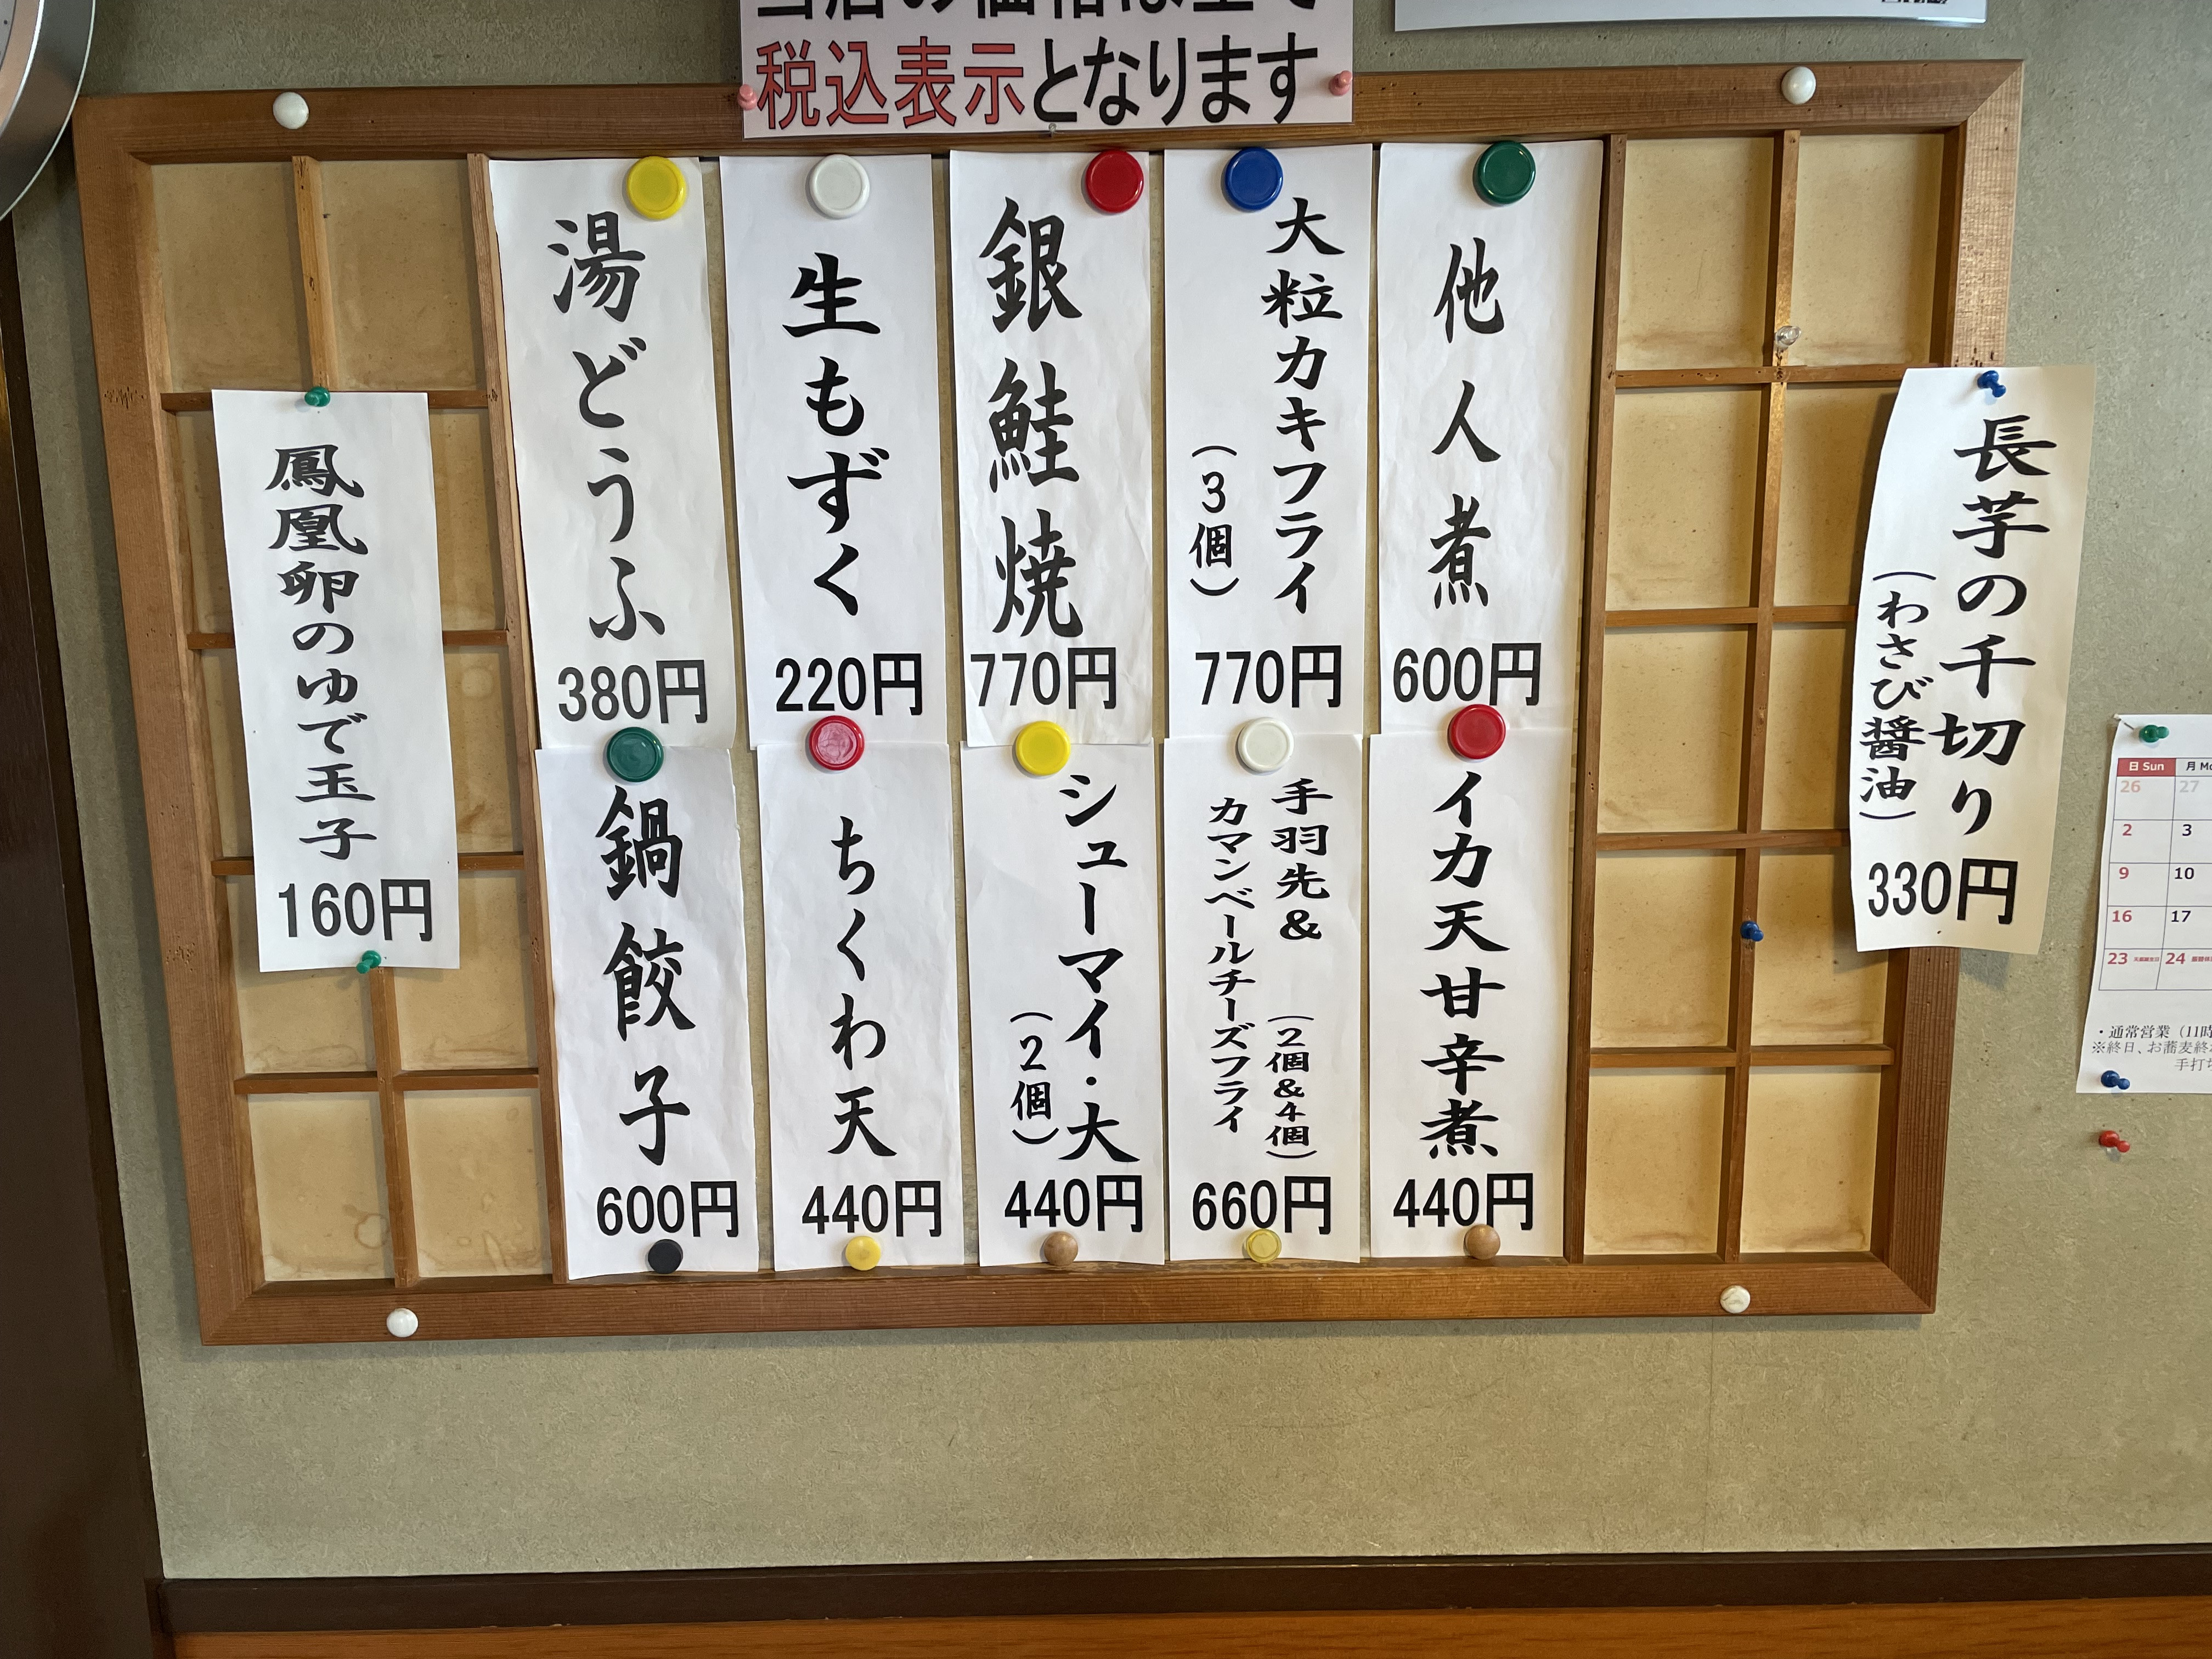 当店の価格は全て
税込表示となります
長芋の千切り
（わさび醤油）
330円
他人煮
600円
大粒カキフライ
（3個）
770円
銀鮭焼
770円
生もずく
220円
湯どうふ
380円
イカ天甘辛煮
440円
手羽先&
カマンベールチーズフライ
（2個&4個）
660円
シューマイ・大
（2個）
440円
ちくわ天
440円
鍋餃子
600円
鳳凰卵のゆで玉子
160円
日 Sun
月
26 27
2 3
9 10
16 17
23 24
・通常営業（11時
※終日、お蕎麦終
手打ち